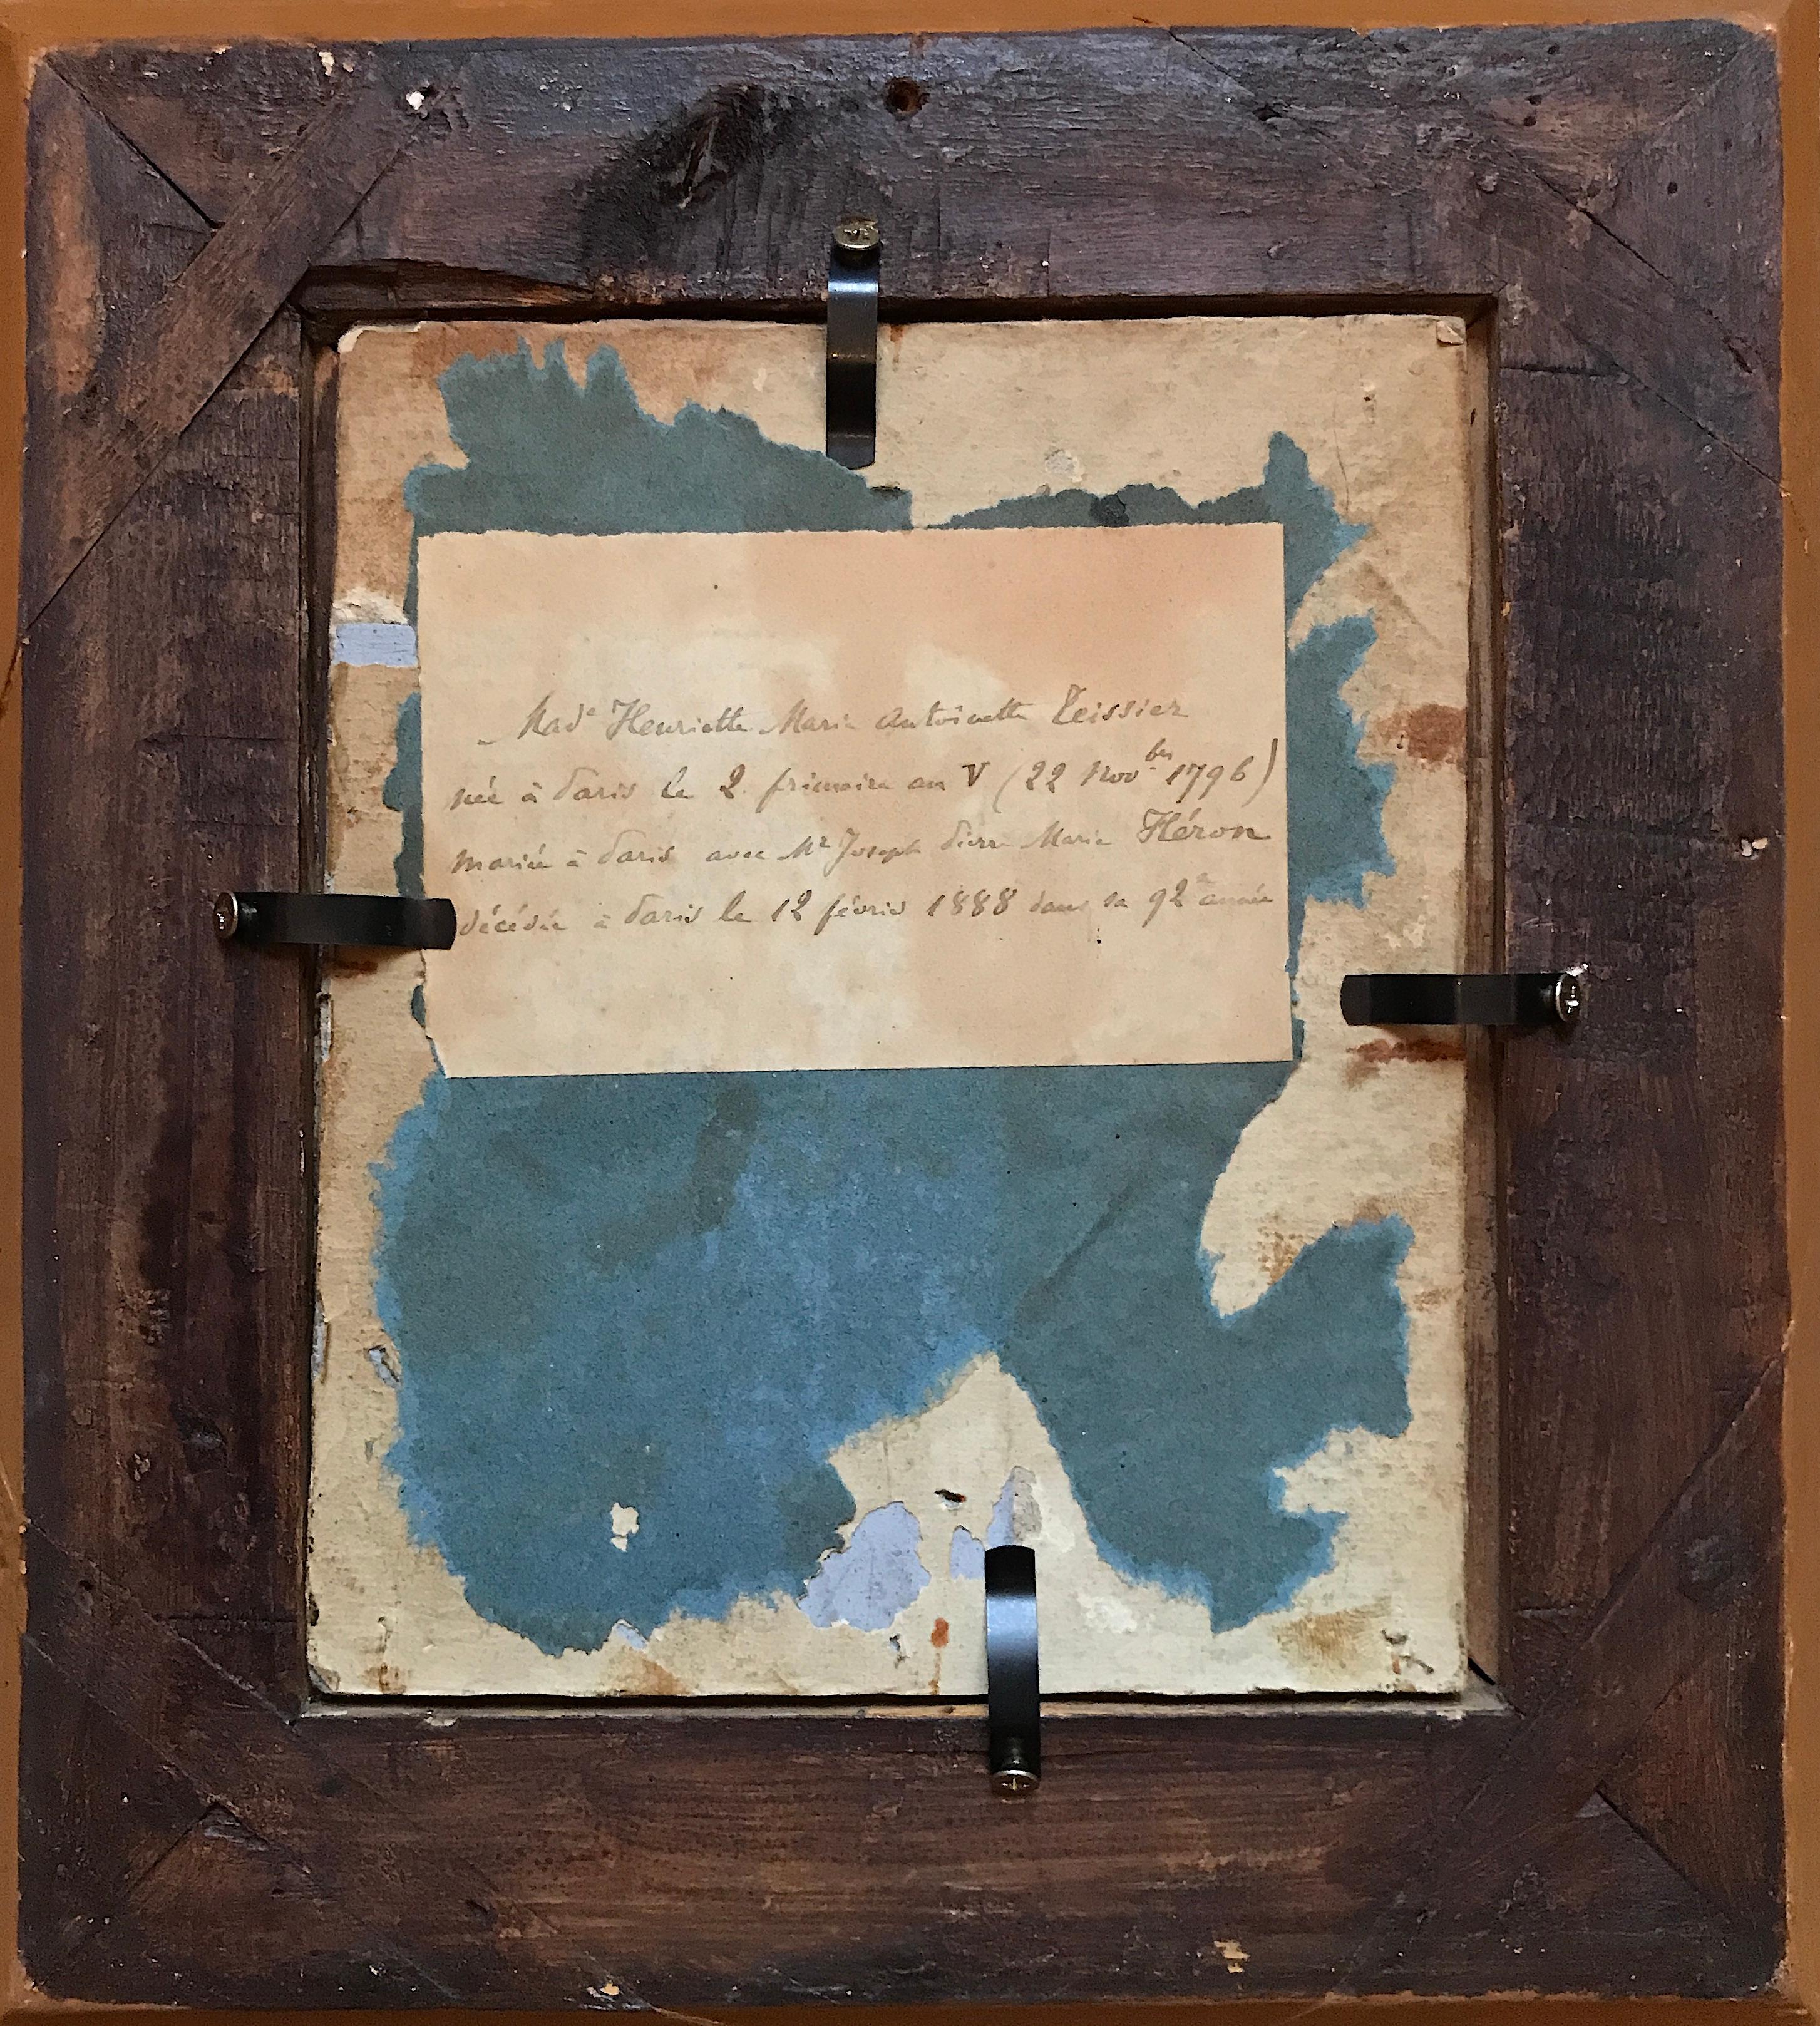 Made Henriette Marie Antoinette Teissier
née à Paris le 2 frimaire an V (22 Novbre 1796)
mariée à Paris avec Mr Joseph Pierre Marie Héron
décédée à Paris le 12 février 1888 dans sa 92e année